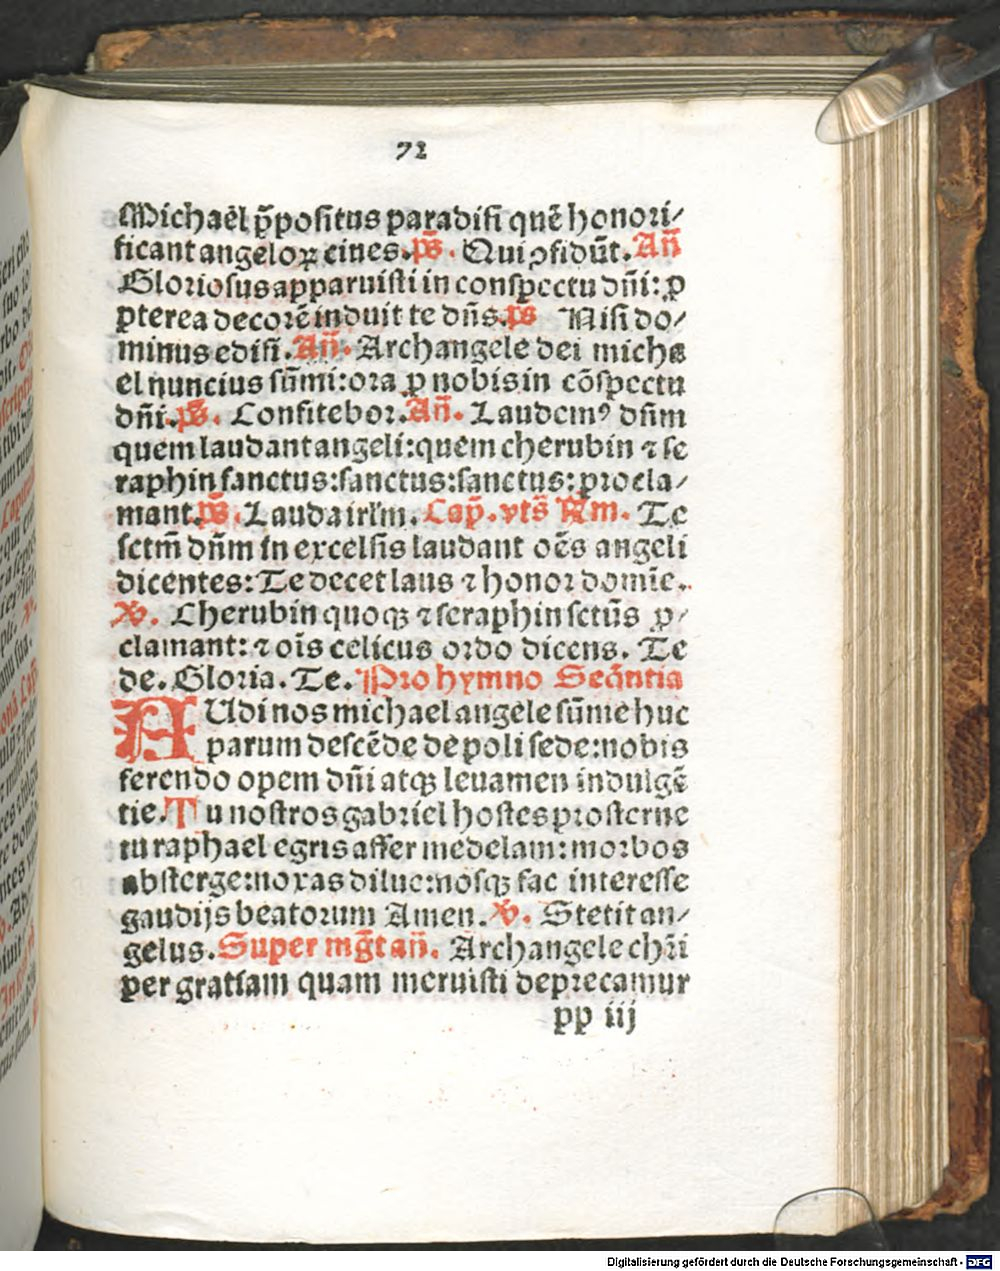 72
Michaël p̄positus paradisi quē honori⸗
ficant angeloꝝ ciues. p̄s. Qui ꝯfidūt. Añ
Gloriosus apparuisti in conspectu dñi: ꝓ
pterea decorē induit te dñs. ps Nisi do⸗
minus edifi. Añ. Archangele dei micha
el nuncius sūmi: ora ꝓ nobis in cōspectu
dñi. p̄s. Confitebor. Añ. Laudemꝰ dñm
quem laudant angeli: quem cherubin ⁊ se
raphin sanctus: sanctus: sanctus: procla⸗
mant. p̄s. Lauda irl̄m. Cap̄. vts̄ Rm. Te
sctm̄ dñm in excelsis laudant oēs angeli
dicentes: Te decet laus ⁊ honor domīe.
℣. Cherubin quoqꝫ ⁊ seraphin sctūs ꝓ⸗
clamant: ⁊ oīs celicus ordo dicens. Te
de. Gloria. Te. Pro hymno Seq̄ntia
AUdi nos michael angele sūme huc
parum descēde de poli sede: nobis
ferendo opem dñi atqꝫ leuamen indulgē
tie. Tu nostros gabriel hostes prosterne
tu raphael egris affer medelam: morbos
absterge: noxas dilue: nosqꝫ fac interesse
gaudijs beatorum Amen. ℣. Stetit an⸗
gelus. Super mḡt añ. Archangele chr̄i
per gratiam quam meruisti deprecamur
pp iij
Digitalisierung gefördert durch die Deutsche Forschungsgemeinschaft - DFG